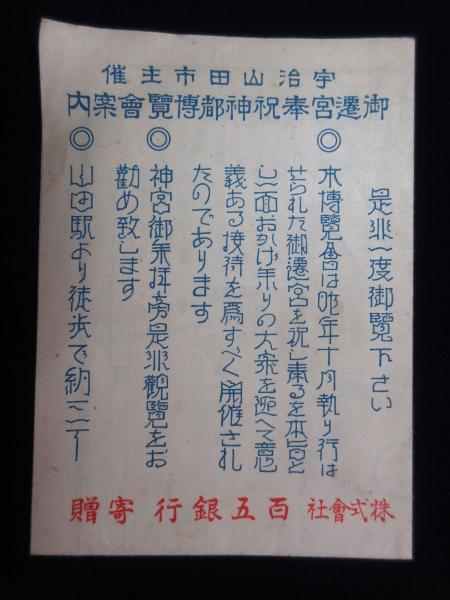 宇治山田市主催
御遷宮奉祝神都博覽會案内
是非一度御覽下さい
◎本博覽會は昨年十月執り行は
せられた御遷宮を祝し奉るを本旨と
し一面おかげ参りの大衆を迎へて意
義ある接待を爲すべく開催され
たのであります
◎神宮御参拝旁是非觀覽をお
勸め致します
◎山田駅より徒歩で約三丁
株式會社百五銀行寄贈